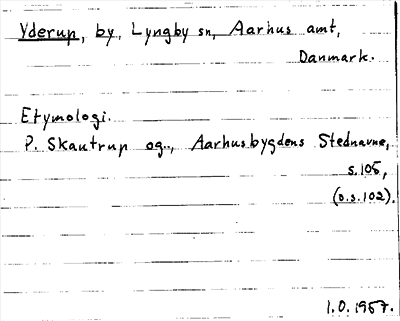 Yderup, by, Lyngby sn, Aarhus amt,
Danmark.
Etymologi.
P. Skautrup og., Aarhusbygdens Stednavne,
s.105,
(o.s.102).
1.0.1957.